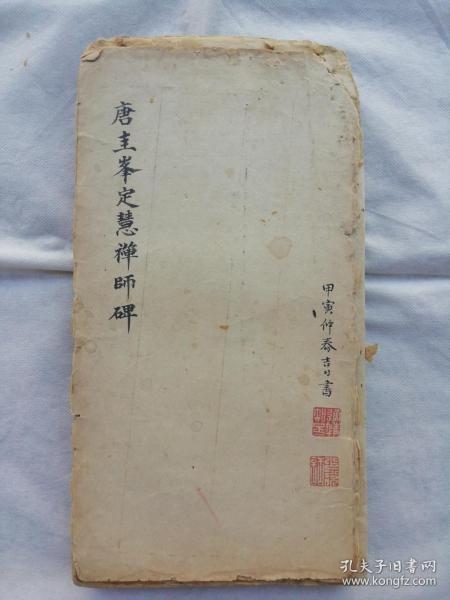 唐圭峯定慧禪師碑
甲寅仲春吉日書
孔夫子旧书网
www.kongfz.com